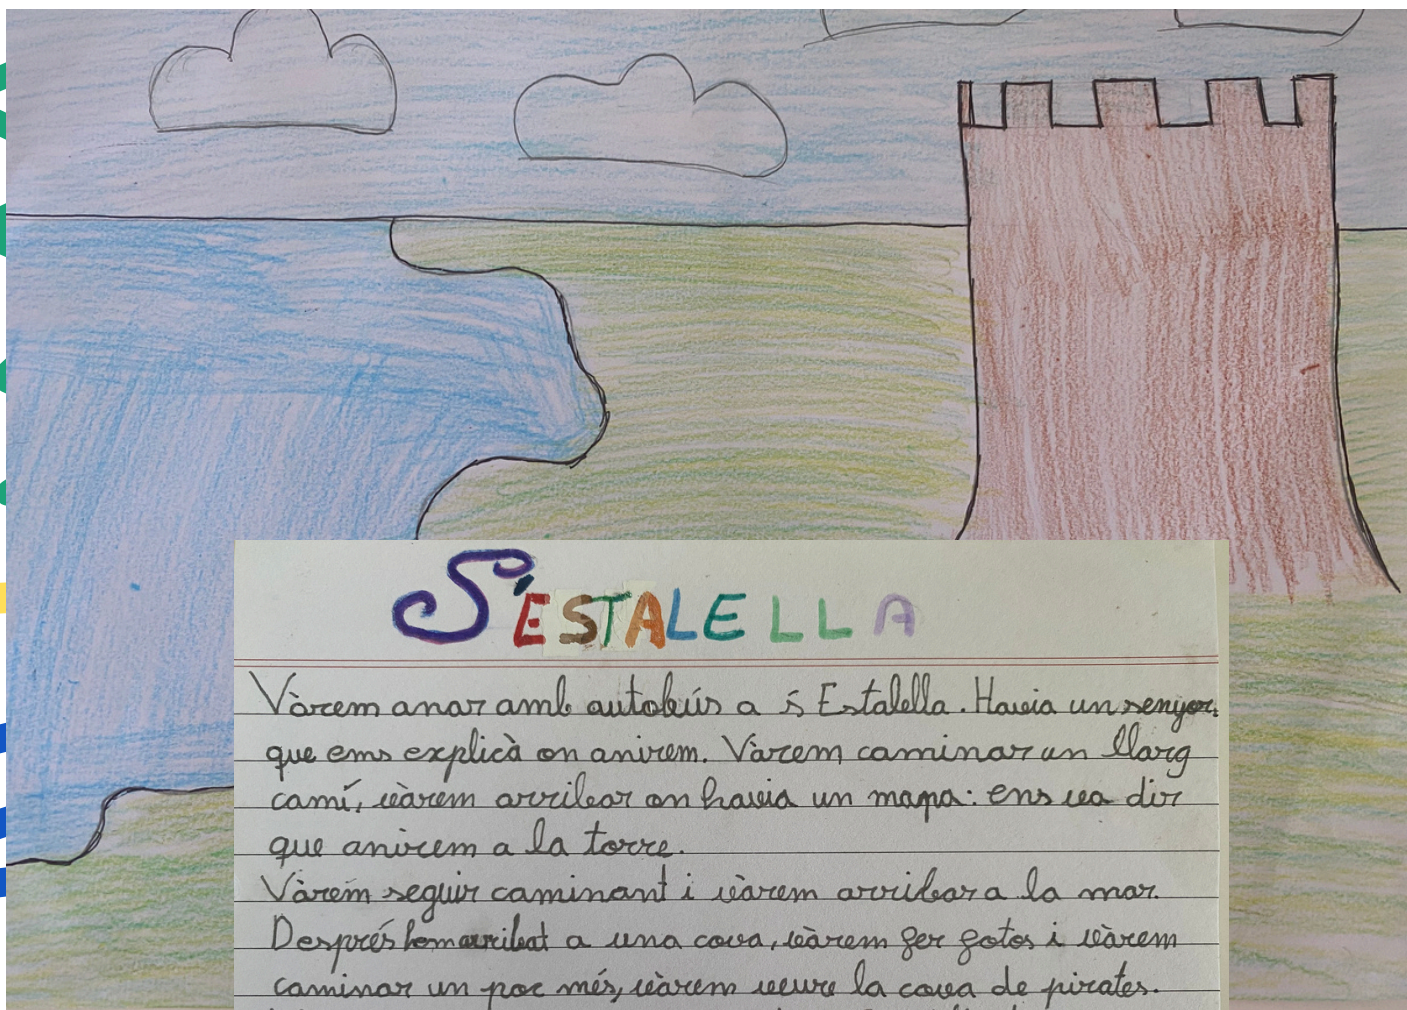 S'ESTALELLA
Vàrem anar amb autobús a s'Estalella. Havia un senyor,
que ems explicà on anirem. Vàrem caminar un llarg
camí, vàrem arribar on havia un mapa: ens va dir
que anirem a la torre.
Vàrem seguir caminant i vàrem arribar a la mar.
Després hem arribat a una cova, vàrem fer fotos i vàrem
caminar un poc més, vàrem veure la cova de pirates.